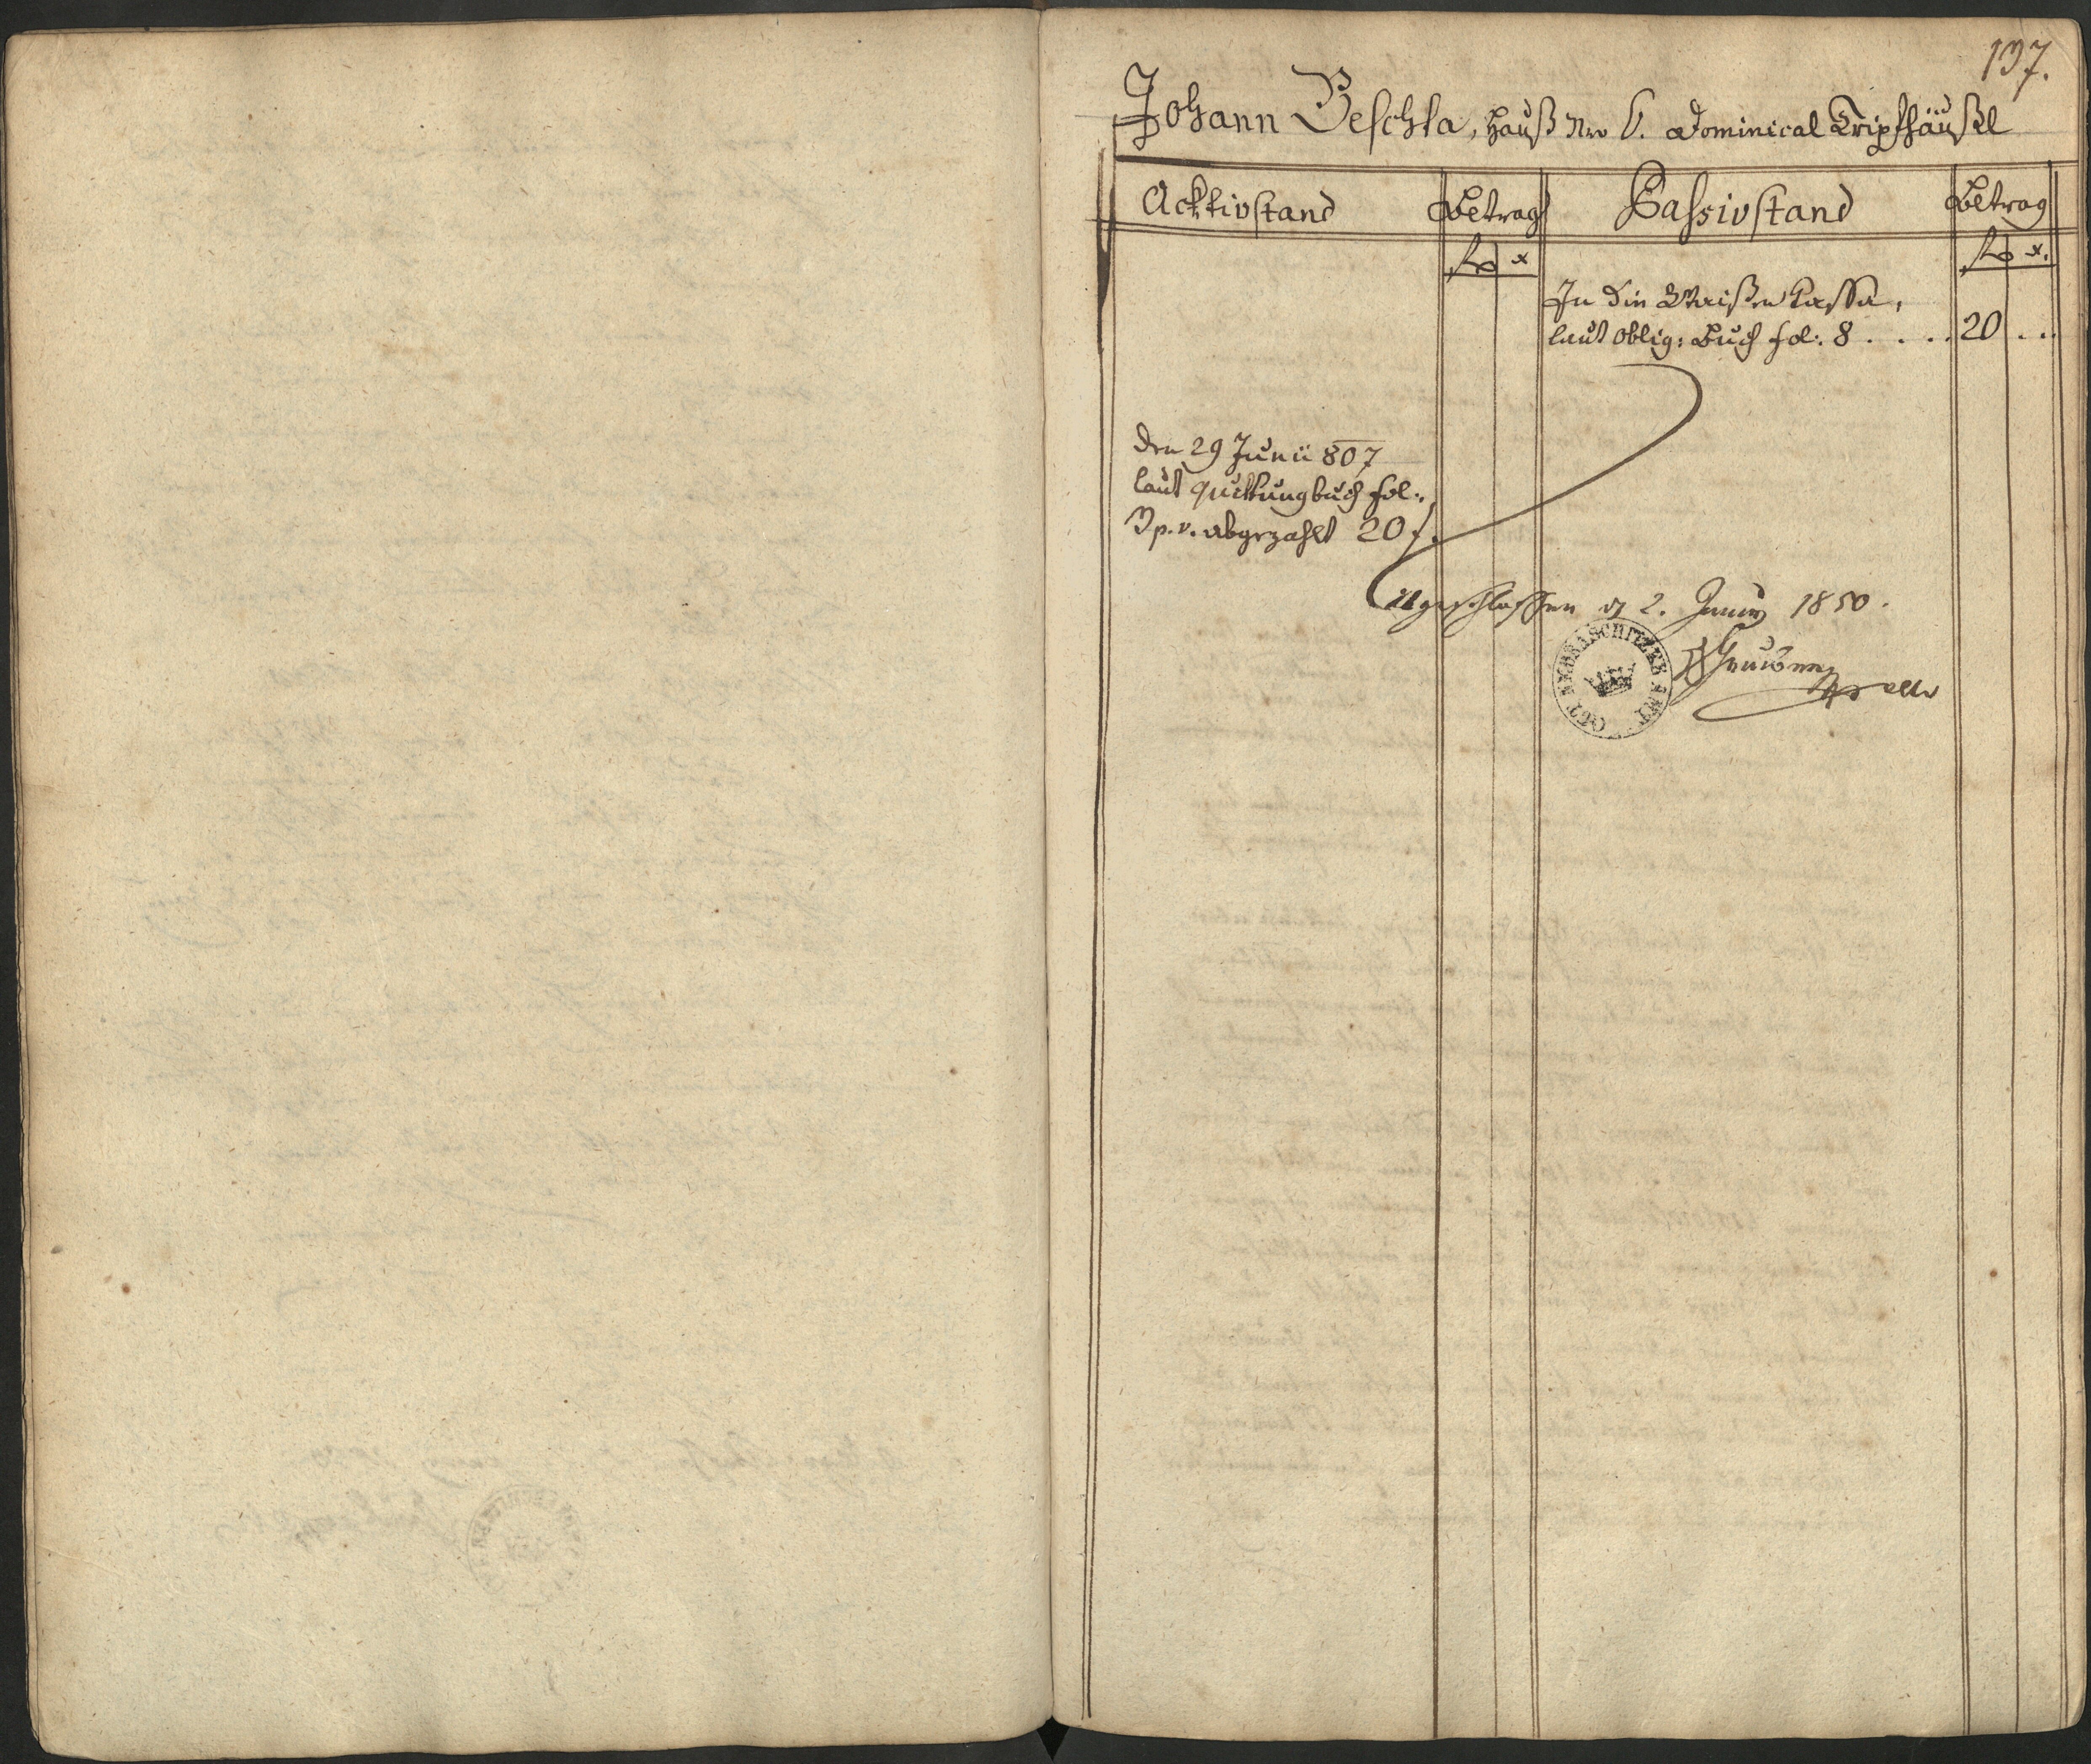 137.
Johann Peschka, Hauß Nro 6. Dominical Tripfhäußl
Acktivstand Betrag Passivstand Betrag
fl x fl x.
In die Waißen Cassa,
laut Oblig: Buch fol: 8 . . . . 20 . . .
den 29 Junii 807
laut Quittungbuch fol:
3 p. v. abgezahlt 20 f.
Abgeschlossen 2. Juny 1850.
GUT SKRBASCHITZER AMT